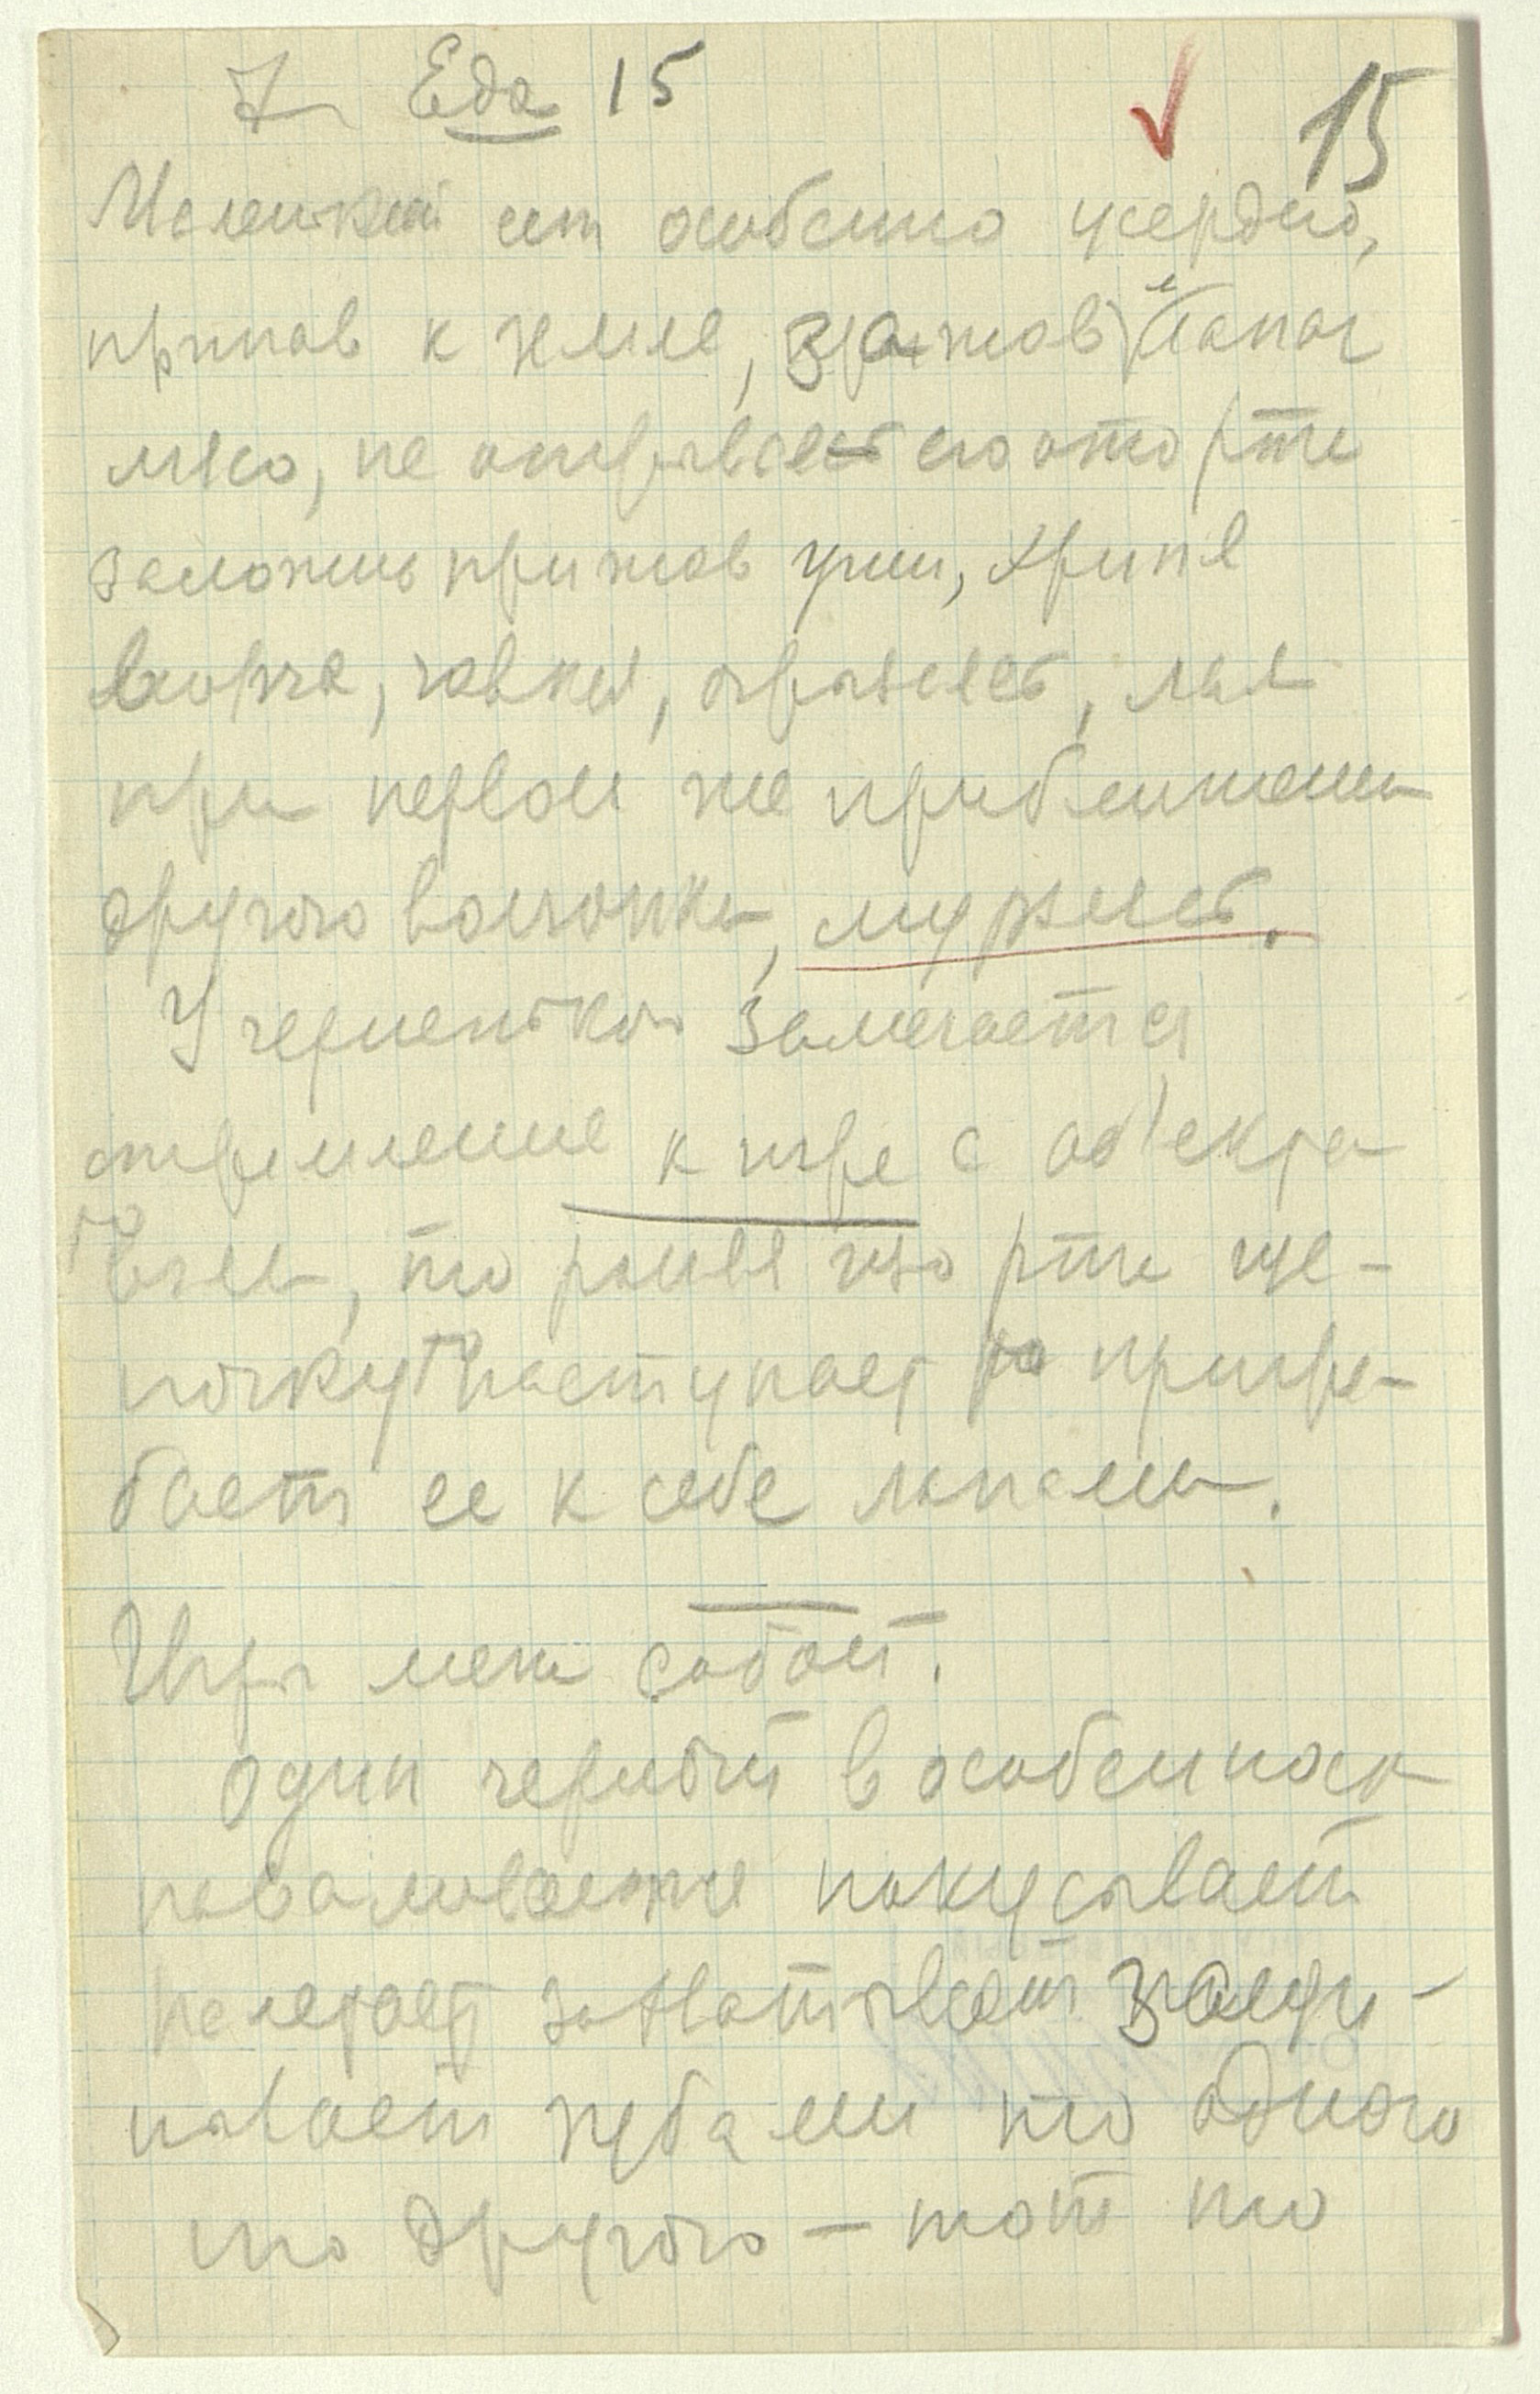 7 Еда 15
15
Маленький ест особенно усердно,
припав к земле, зажав в лапах
мясо, не открывает его ото рта
заложив прижав уши, хрипя
ворча, чавкая, огрызаясь, лая
при первом же приближении
другого волчонка,
У черненького замечается
стремление к игре с объекта
взяв, то роняя изо рта ще-
почку наступает то пригре-
бает ее к себе лапами.
Игры меж собой.
Один черный в особенност
поваливает покусывает
налетает захватывает защи-
пывает зубами то одного
то другого — тот то